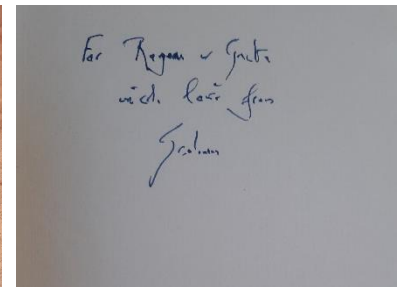 For Rogan & Greta
with love from
Graham